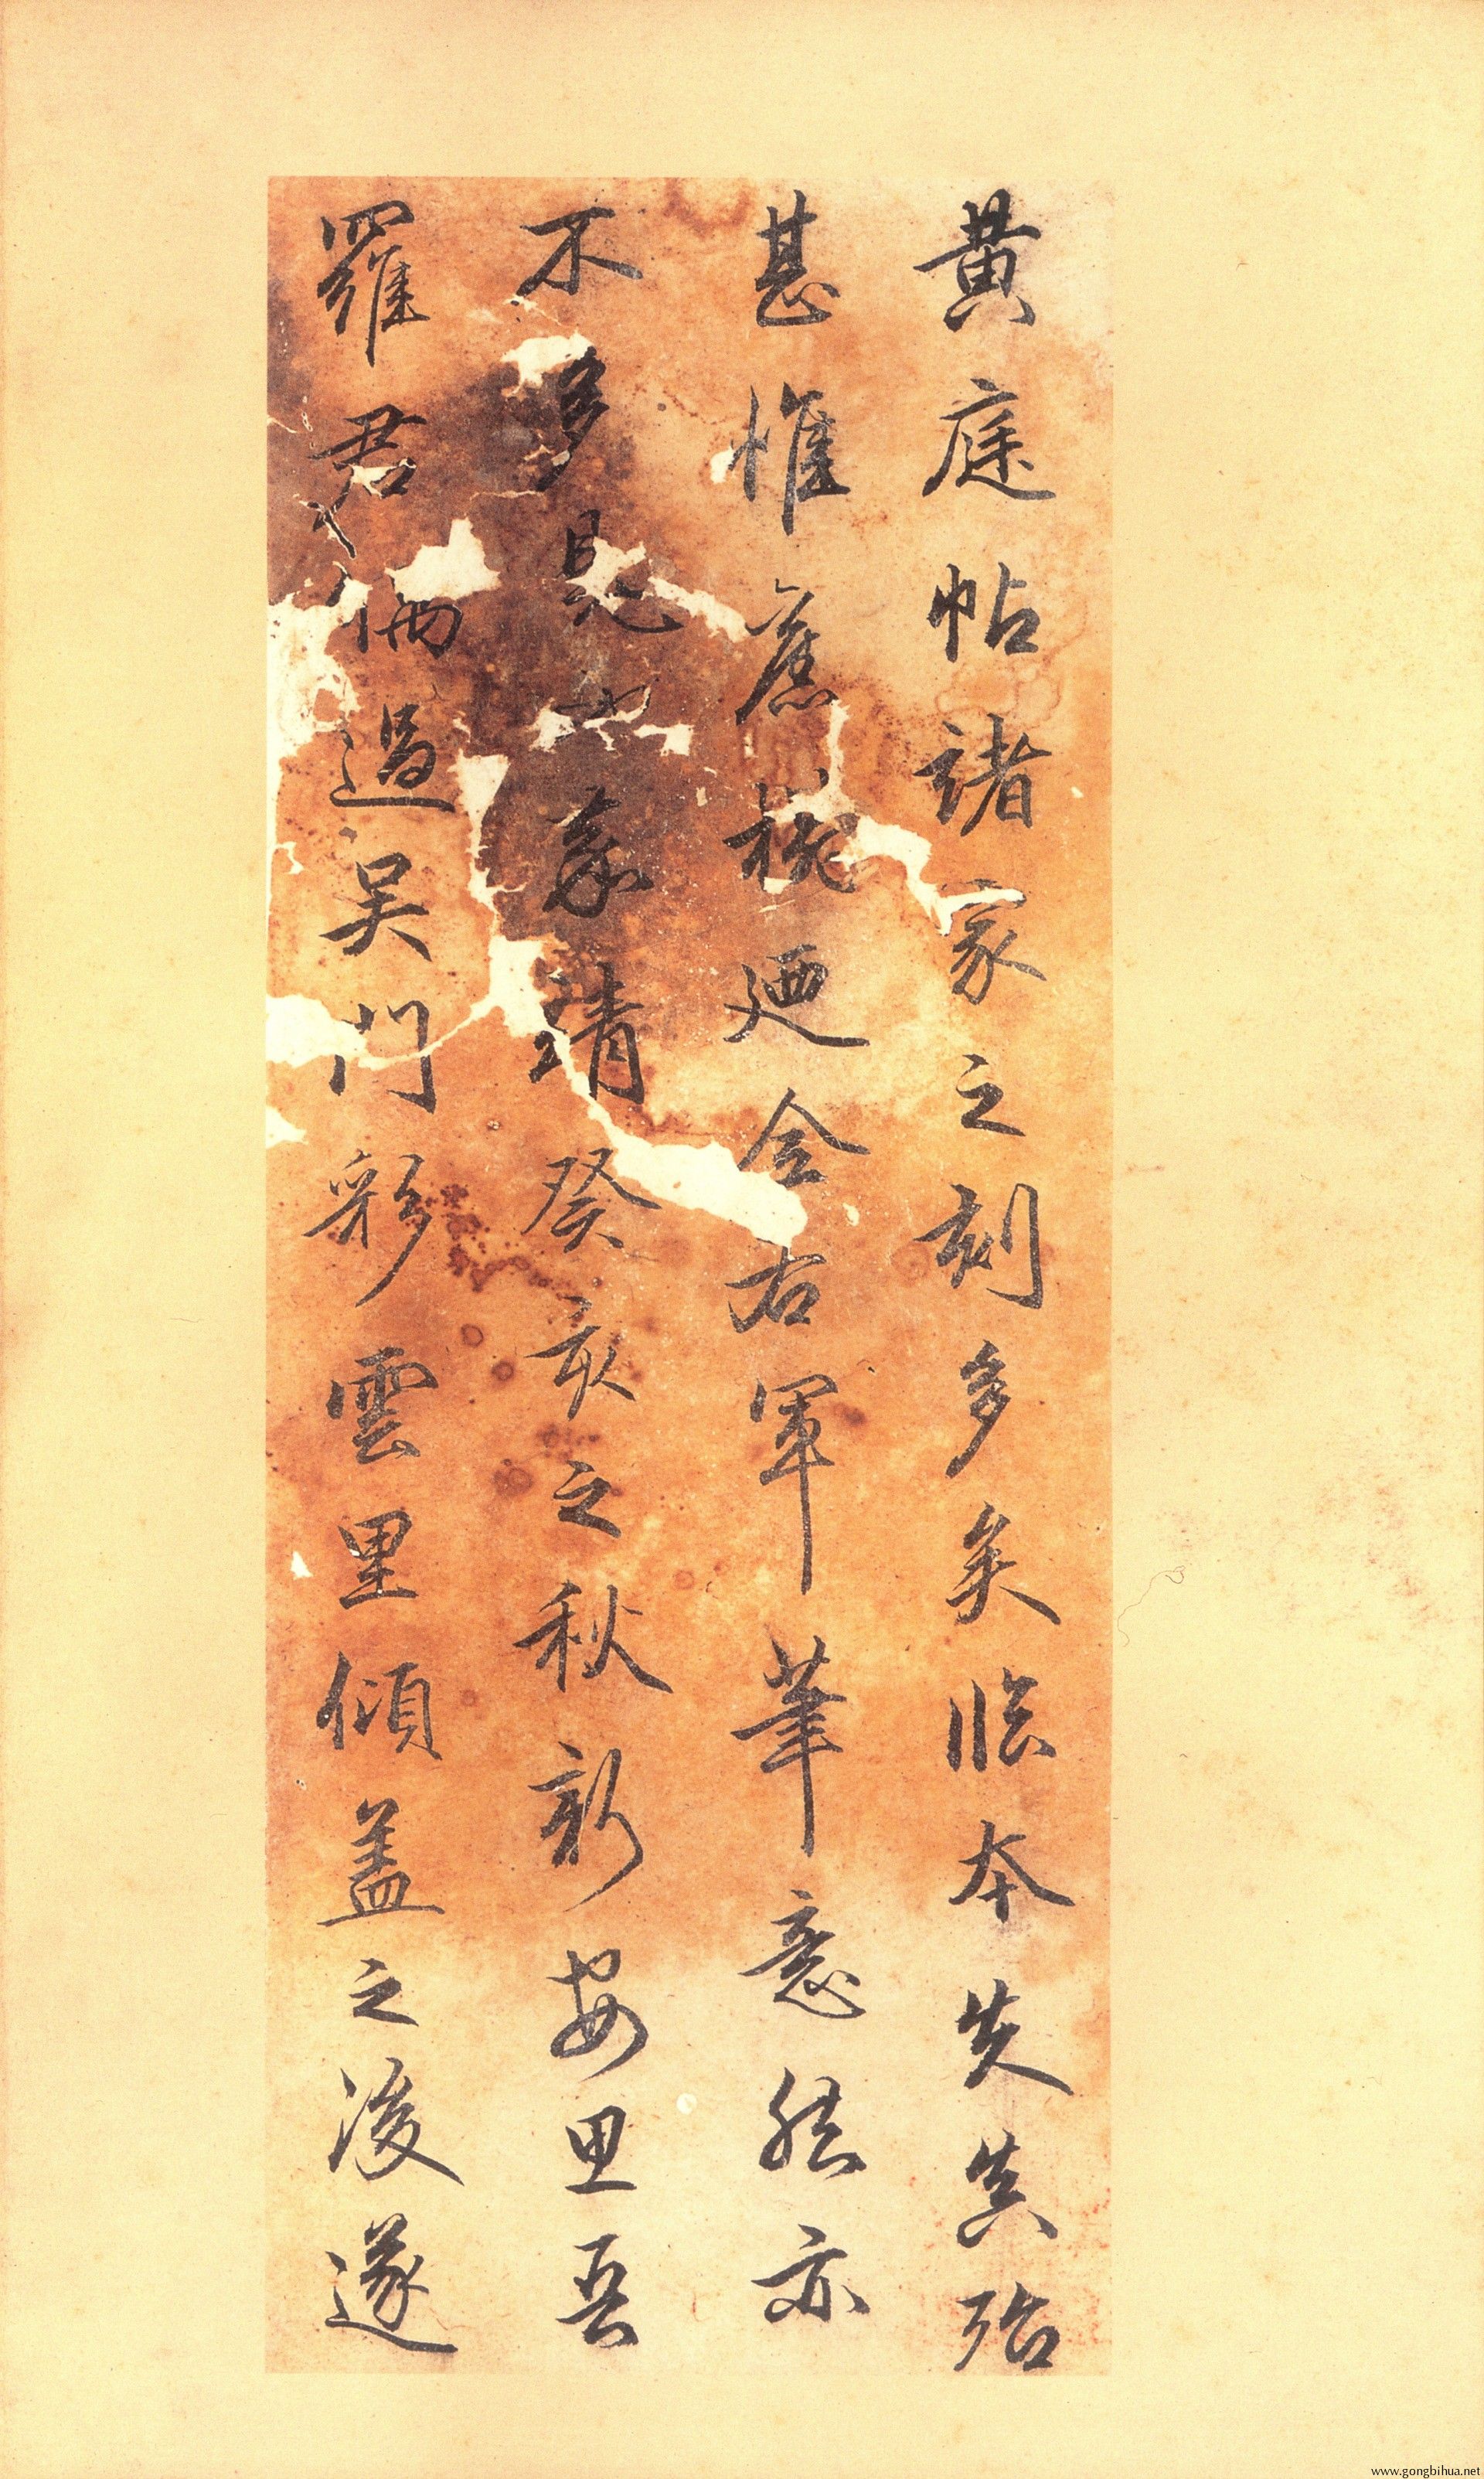 黄庭帖諸家之刻多矣临本失真殆
甚惟舊榻廼令右軍筆意然亦
不多見也嘉靖癸亥之秋新安里吾
羅君偶過吴門彩雲里傾蓋之後遂
www.gongbihua.net